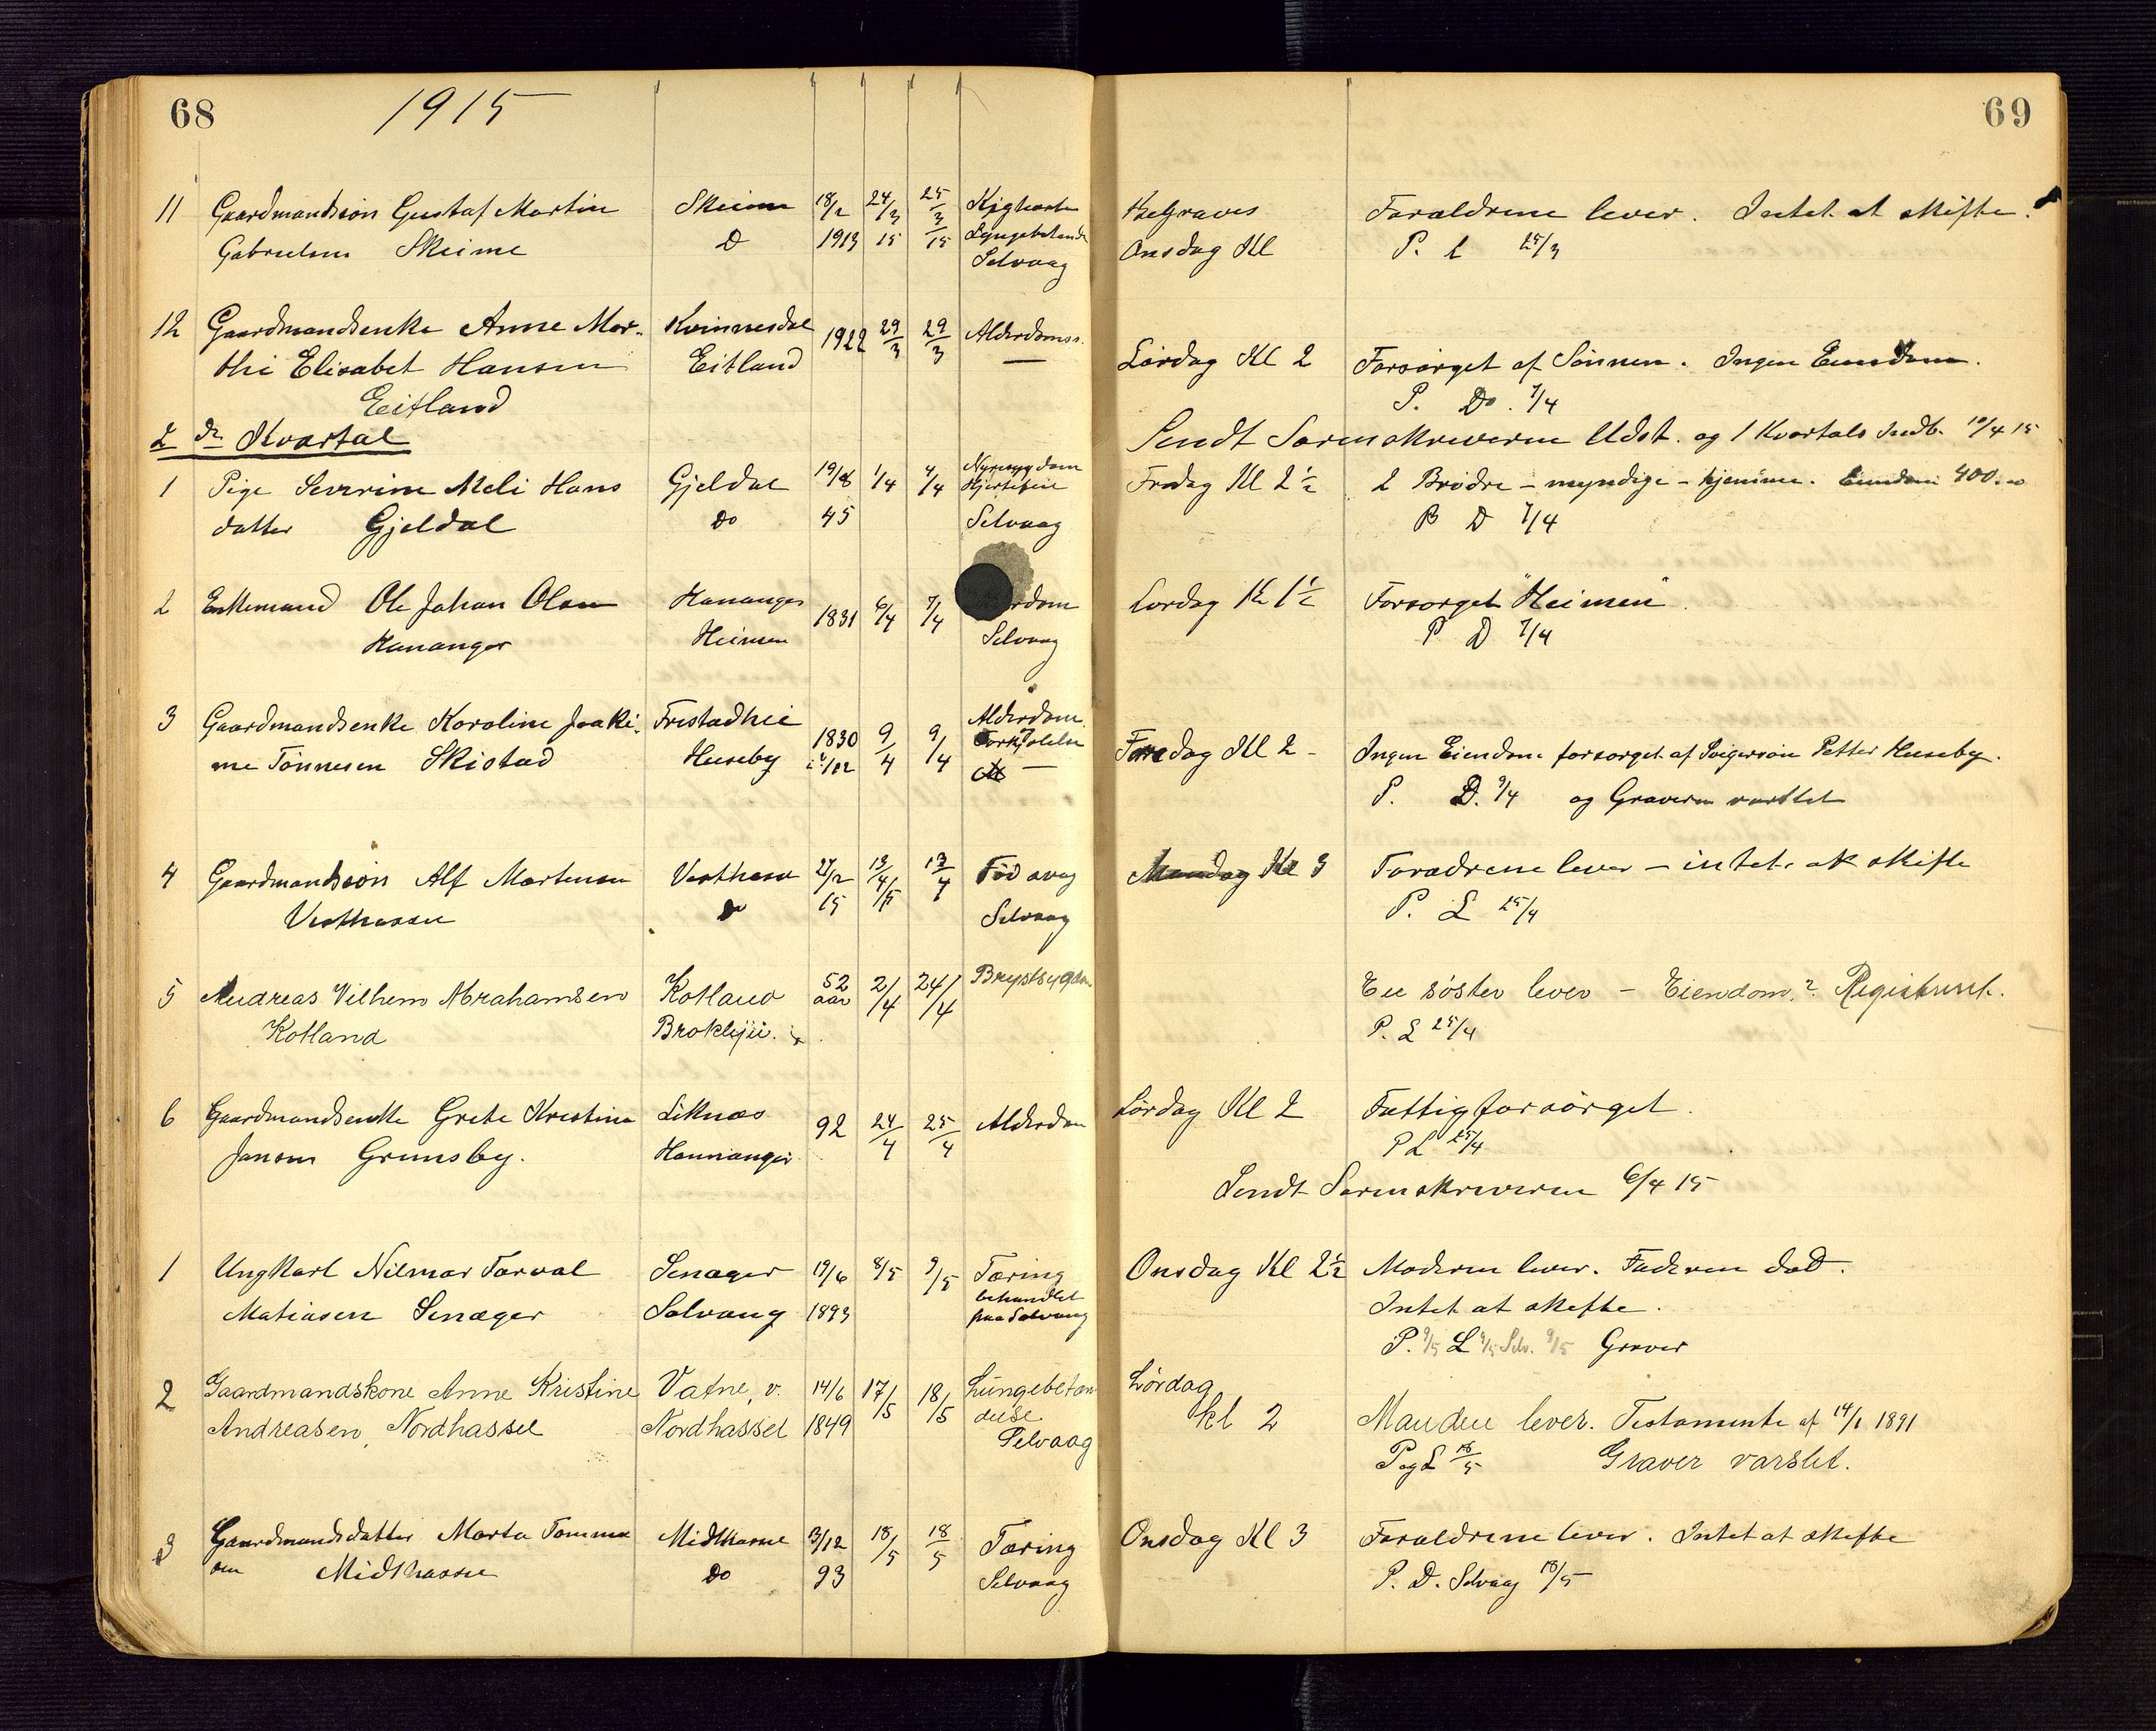 68 1915 69
11 Gaardmandssön Gustaf Martin Skeime 18/2 24/3 25/3 Kighoste Begraves Foraldrene lever. Intet at skifte.
Gabrielsen Skeime Do 1913 15 15 Lungebetænd Onsdag Kl P. L 25/3
Selvaag
12 Gaardmandsenke Anne Mar- Kvinnesdal 1922 29/3 29/3 Alderdoms. Lördag Kl 2 Forsörget af Sönnen. Ingen Eiendom.
thi Elisabet Hansen Eitland — P. Do. 7/4
Eitland
2 det Kvartal Sendt Sorenskriveren Udst. og 1 Kvartals Indb. 10/4 15
1 Pige Severine Meli Hans Gjeldal 19/8 1/4 4/4 Nyresygdom Fredag Kl 2 1/2 2 Brödre – myndige – hjemme. Eiendom 400.00
Hjertefeil
datter Gjeldal Do 45 Selvaag P D 7/4
2 Enkemand Ole Johan Olsen Hananger 1831 6/4 7/4 Lordag Kl 1 1/2 Forsorget "Heimen"
Hananger Heimen Selvaag P D 7/4
3 Gaardmandsenke Karoline Joaki- Frestadhei 1830 9/4 9/4 Alderdom Fredag Kl 2 – Ingen Eiendom forsorget af Svigersön Petter Huseby.
Forkjölelse
me Tönnesen Skistad Huseby /12 — P. D. 9/4 og Graveren varslet
4 Gaardmandssön Alf Martinsen Vesthasse 27/2 13/4 13/4 Död svag Mandag Kl 3 Foradrene lever – intet at skifte
Vesthassel Do 15 15 Selvaag P. L 15/4
5 Andreas Vilhem Abrahamsen Kotland 52 aar 2/4 24/4 Brystsygdom En söster lever – Eiendom? Registreret.
Kotland Broklyn. P. L 25/4
6 Gaardmandsenke Grete Kristine Liknæs 92 24/4 25/4 Alderdom Lördag Kl 2 Fattigforsörget.
Jansen Grunsby. Hannanger P L 25/4
Sendt Sorenskriveren 6/4 15
1 Ungkarl Nilmar Torval Senager 19/6 8/5 9/5 Tæring Onsdag Kl 2 1/2 Moderen lever. Faderen död.
behandlet
Matiasen Senæger Solvang 1893 paa Solvang Intet at skefte.
P. 9/5 L 9/5 Selv. 9/5 Graver
2 Gaardmandskone Anne Kristine Vatne, v. 14/6 17/5 18/5 Lungebetæn Lördag
Andreasen, Nordhassel Nordhassel 1849 delse kl 2 Manden lever. Testamente af 14/1 1891
Selvaag P og L 18/5 Graver varslet.
3 Gaardmandsdatter Marta Tomme Midthasse 13/12 18/5 18/5 Tæring Onsdag Kl 3 Foraldrene lever. Intet at skefte
sen Midthassel Do 93 Selvaag P. D. Selvaag 18/5